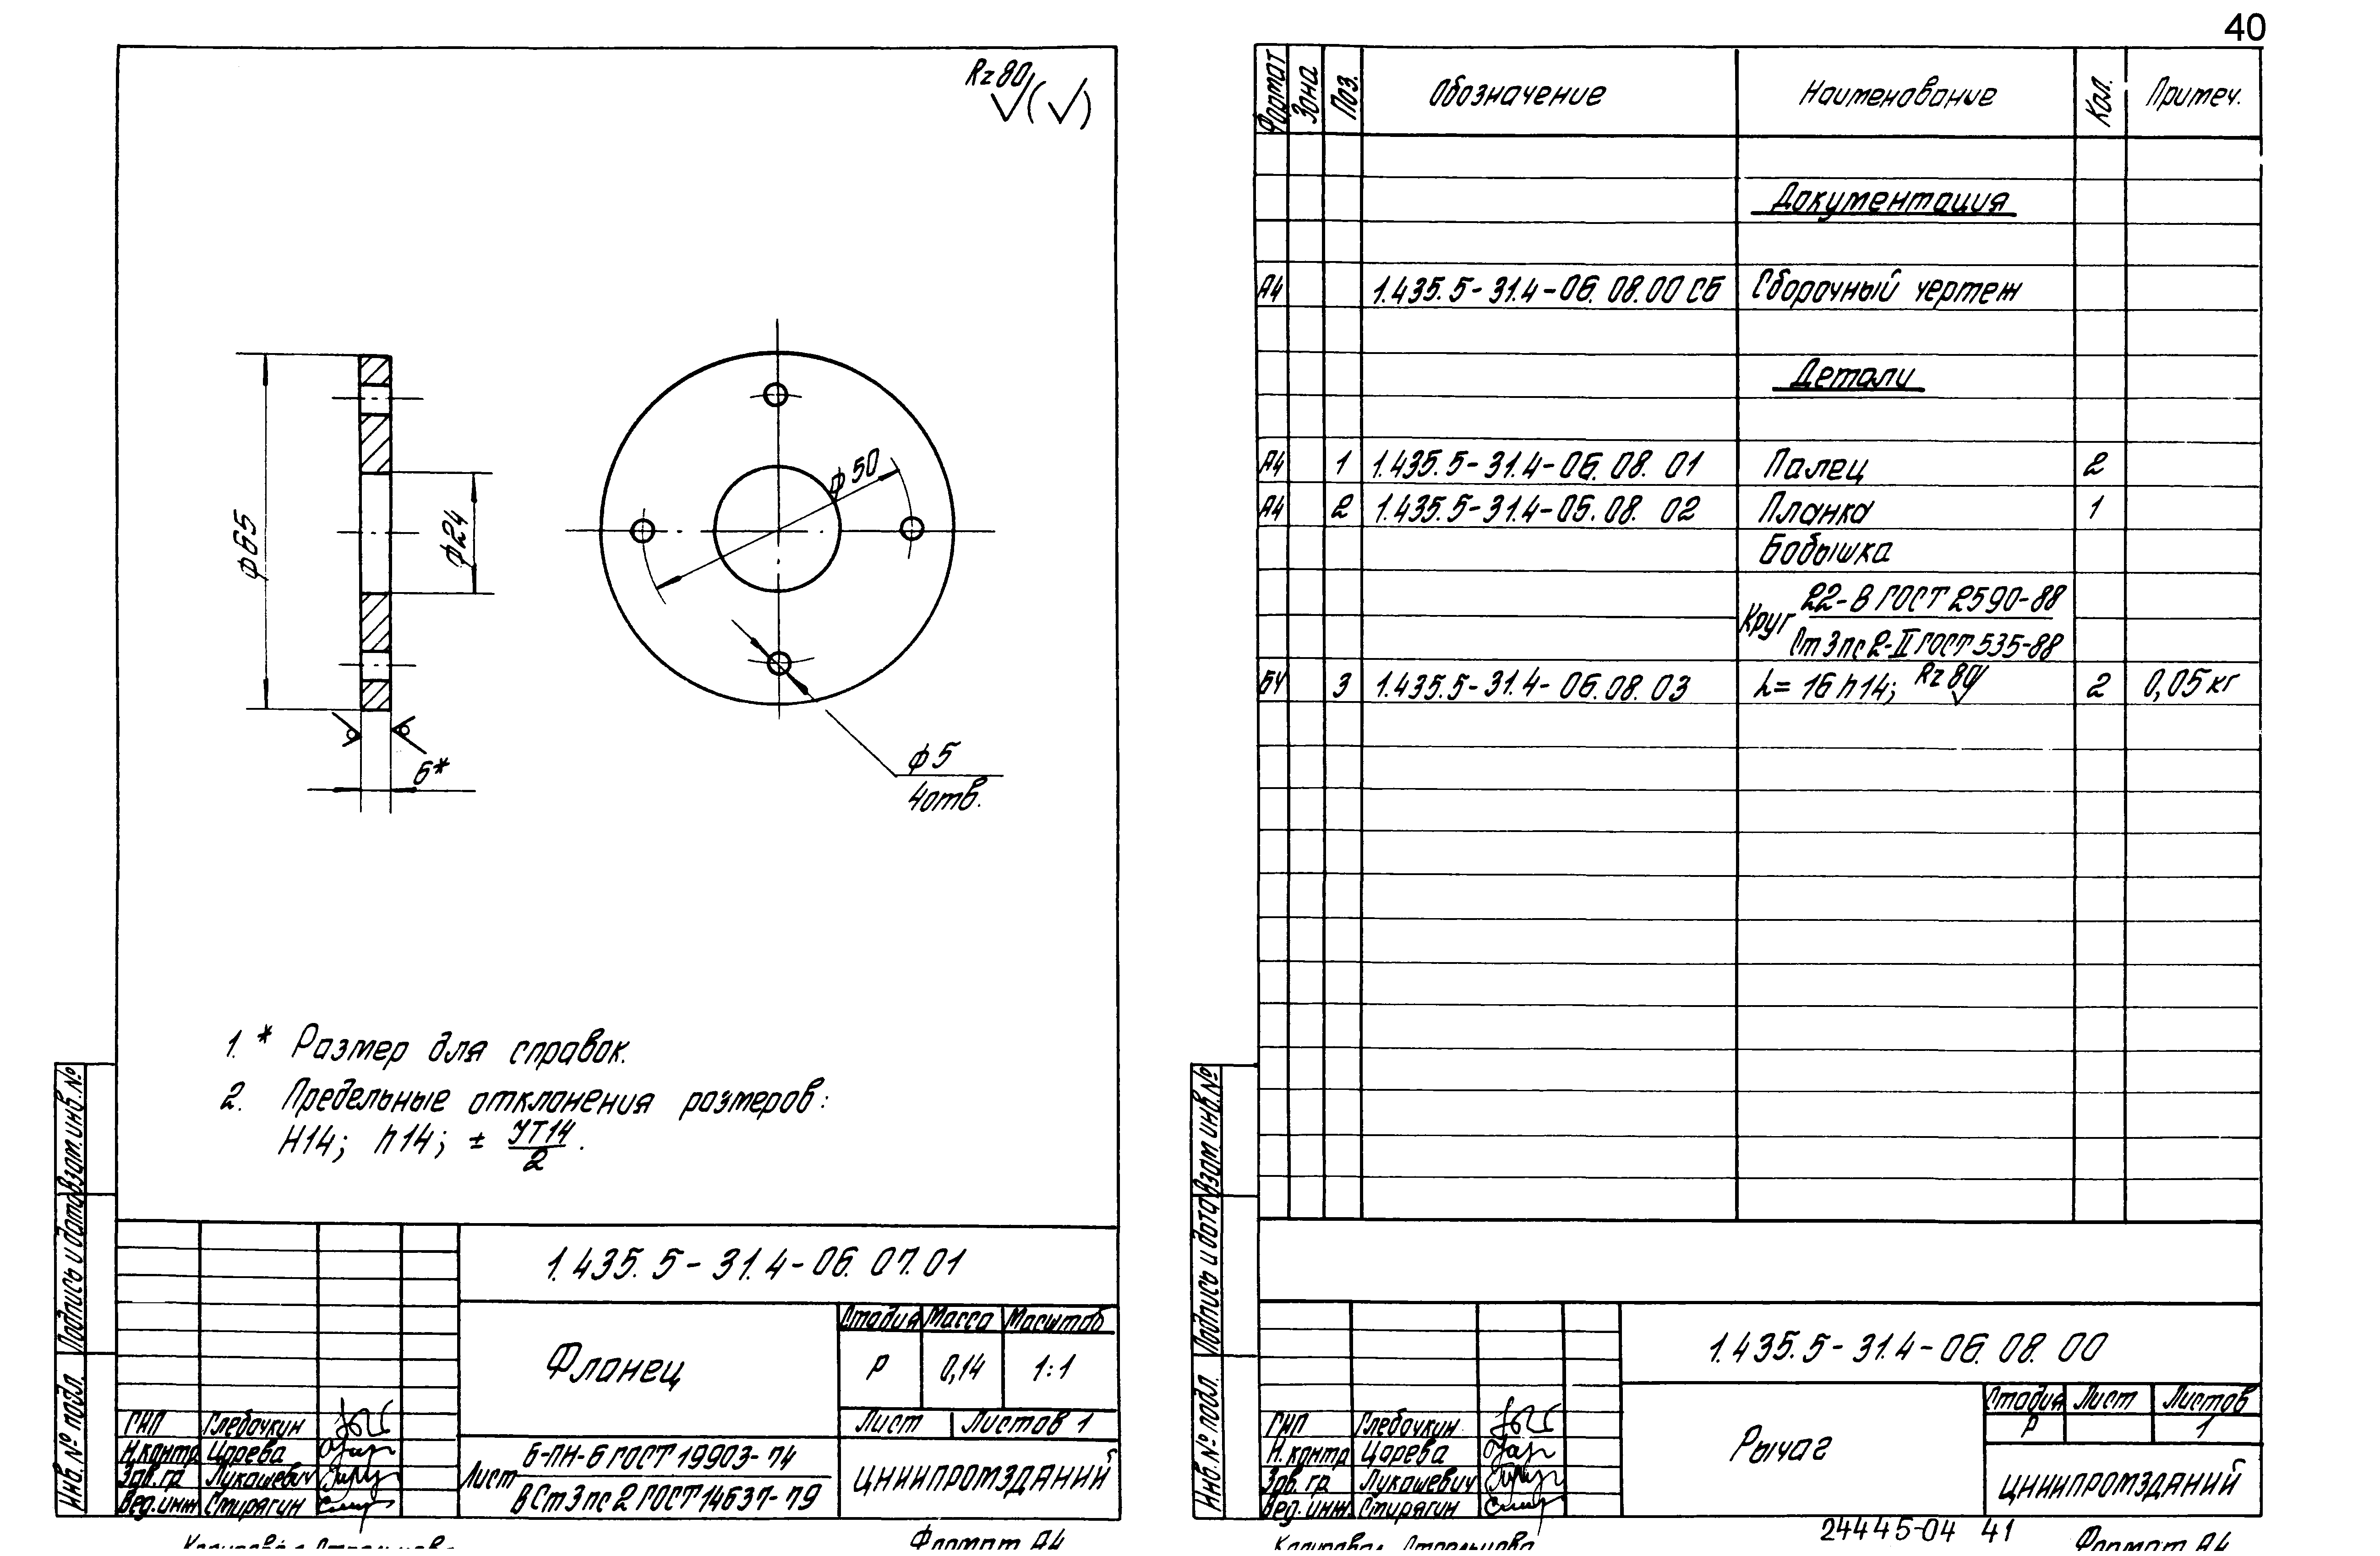 40
Rz80 (√)
ф65
ф24
ф50
ф5
4отв.
6*
1. * Размер для справок.
2. Предельные отклонения размеров:
H14; h14; ± УТ14
2 .
1.435.5-31.4-06.07.01
Фланец
Стадия Масса Масштаб
Р 0,14 1:1
Лист Листов 1
Лист
Б-ПН-6 ГОСТ 19903-74
ВСт3пс2 ГОСТ 14637-79
ЦНИИПРОМЗДАНИЙ
ГИП Глебочкин
Н.контр Царева
Зав.гр Лукашевич
Вед.инж Стирягин
Инв.№ подл.
Подпись и дата
Взам.инв.№
Формат А4
Формат Зона Поз. Обозначение Наименование Кол. Примеч.
Документация
А4 1.435.5-31.4-06.08.00 СБ Сборочный чертеж
Детали
А4 1 1.435.5-31.4-06.08.01 Палец 2
А4 2 1.435.5-31.4-05.08.02 Планка 1
Бобышка
Круг 22-В ГОСТ 2590-88
Ст3пс2-II ГОСТ 535-88
БЧ 3 1.435.5-31.4-06.08.03 h=16h14; Rz80 2 0,05кг
Инв.№ подл.
Подпись и дата
Взам.инв.№
1.435.5-31.4-06.08.00
Рычаг
Стадия Лист Листов
Р 1
ЦНИИПРОМЗДАНИЙ
ГИП Глебочкин
Н.контр Царева
Зав.гр Лукашевич
Вед.инж. Стирягин
24445-04 41
Формат А4